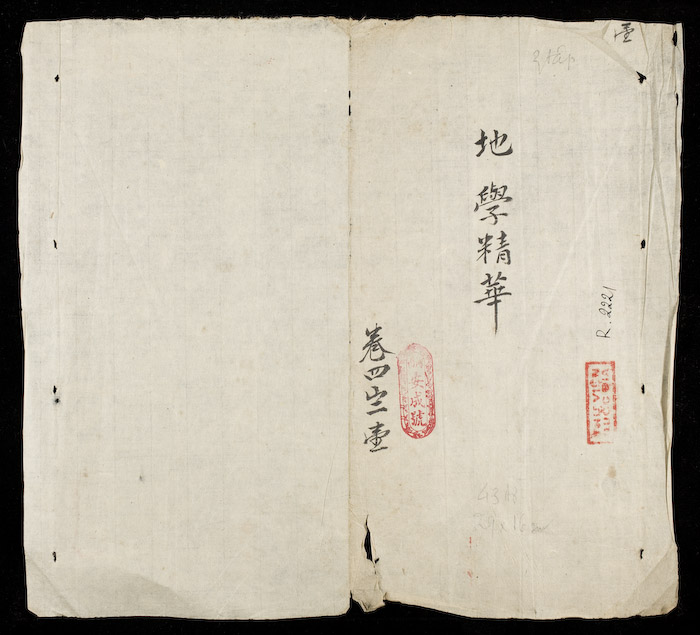 壹
地學精華
R. 2221
THƯ VIỆN
QUỐC GIA
安成號
卷四之壹